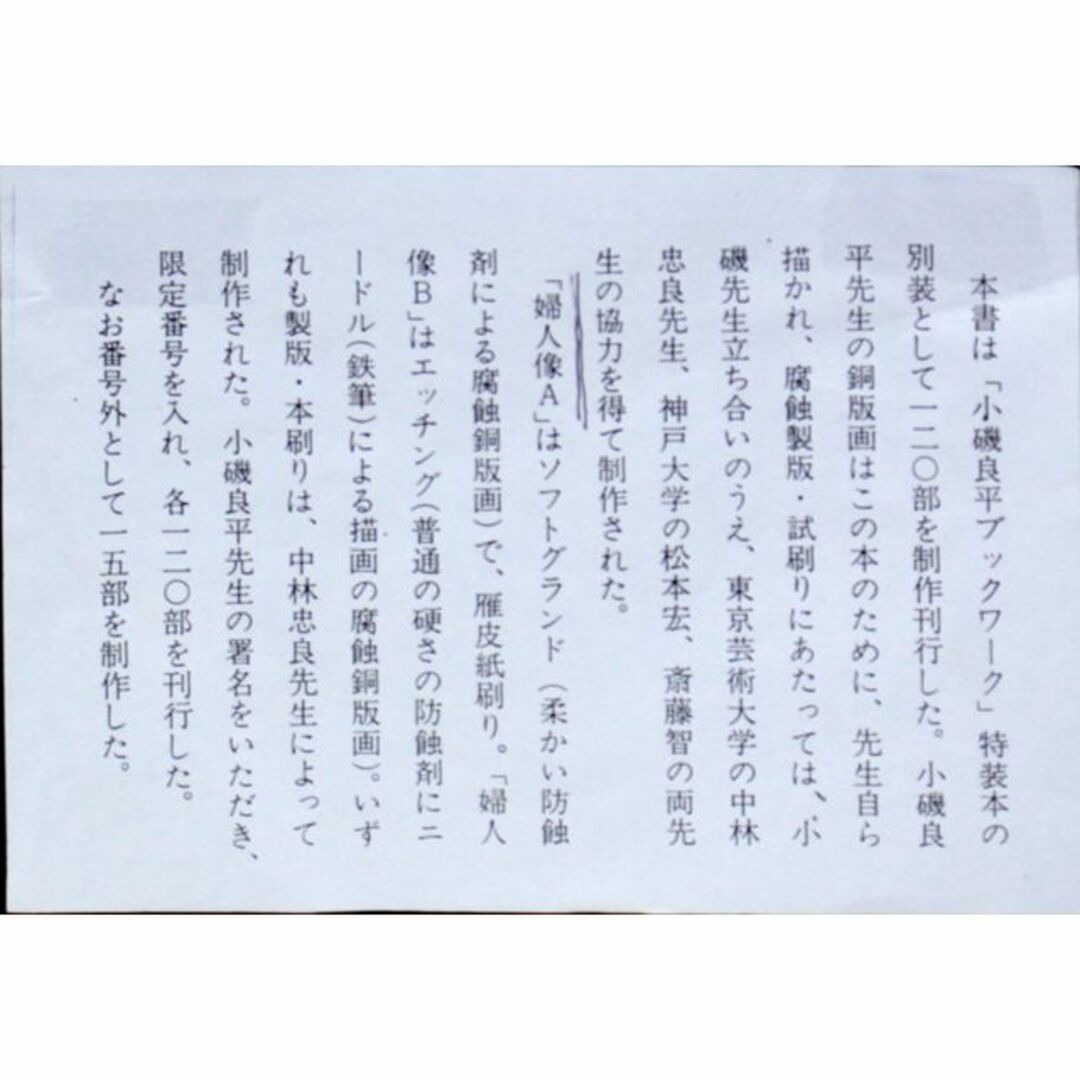 本書は「小磯良平ブックワーク」特装本の
別装として一二〇部を制作刊行した。小磯良
平先生の銅版画はこの本のために、先生自ら
描かれ、腐蝕製版・試刷りにあたっては、小
磯先生立ち合いのうえ、東京芸術大学の中林
忠良先生、神戸大学の松本宏、斎藤智の両先
生の協力を得て制作された。
「婦人像A」はソフトグランド（柔かい防蝕
剤による腐蝕銅版画）で、雁皮紙刷り。「婦人
像B」はエッチング（普通の硬さの防蝕剤にニ
ードル（鉄筆）による描画の腐蝕銅版画）。いず
れも製版・本刷りは、中林忠良先生によって
制作された。小磯良平先生の署名をいただき、
限定番号を入れ、各一二〇部を刊行した。
なお番号外として一五部を制作した。